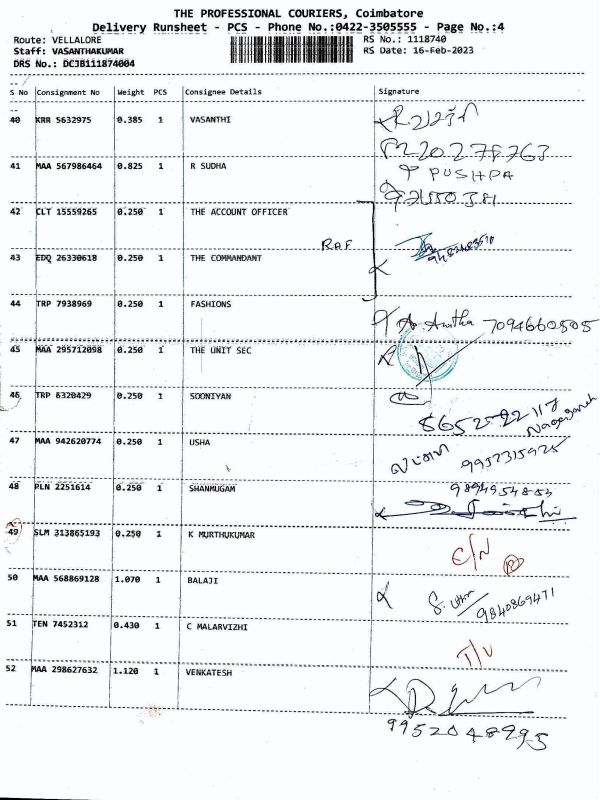 THE PROFESSIONAL COURIERS, Coimbatore
Delivery Runsheet - PCS - Phone No.:0422-3505555 - Page No.:4
Route: VELLALORE RS No.: 1118740
Staff: VASANTHAKUMAR RS Date: 16-Feb-2023
DRS No.: DCJB111874004
S No Consignment No Weight PCS Consignee Details Signature
40 KRR 5632975 0.385 1 VASANTHI
41 MAA 567986464 0.825 1 R SUDHA
PUSHPA
42 CLT 15559265 0.250 1 THE ACCOUNT OFFICER
RAF
43 EDQ 26330618 0.250 1 THE COMMANDANT
44 TRP 7938969 0.250 1 FASHIONS
7094660505
45 MAA 295712098 0.250 1 THE UNIT SEC
46 TRP 6320429 0.250 1 SOONIYAN
47 MAA 942620774 0.250 1 USHA
9952315925
48 PLN 2251614 0.250 1 SHANMUGAM
9894954853
49 SLM 313865193 0.250 1 K MURTHUKUMAR
C/N
50 MAA 568869128 1.070 1 BALAJI
9840869471
51 TEN 7452312 0.430 1 C MALARVIZHI
52 MAA 298627632 1.120 1 VENKATESH
9952048995